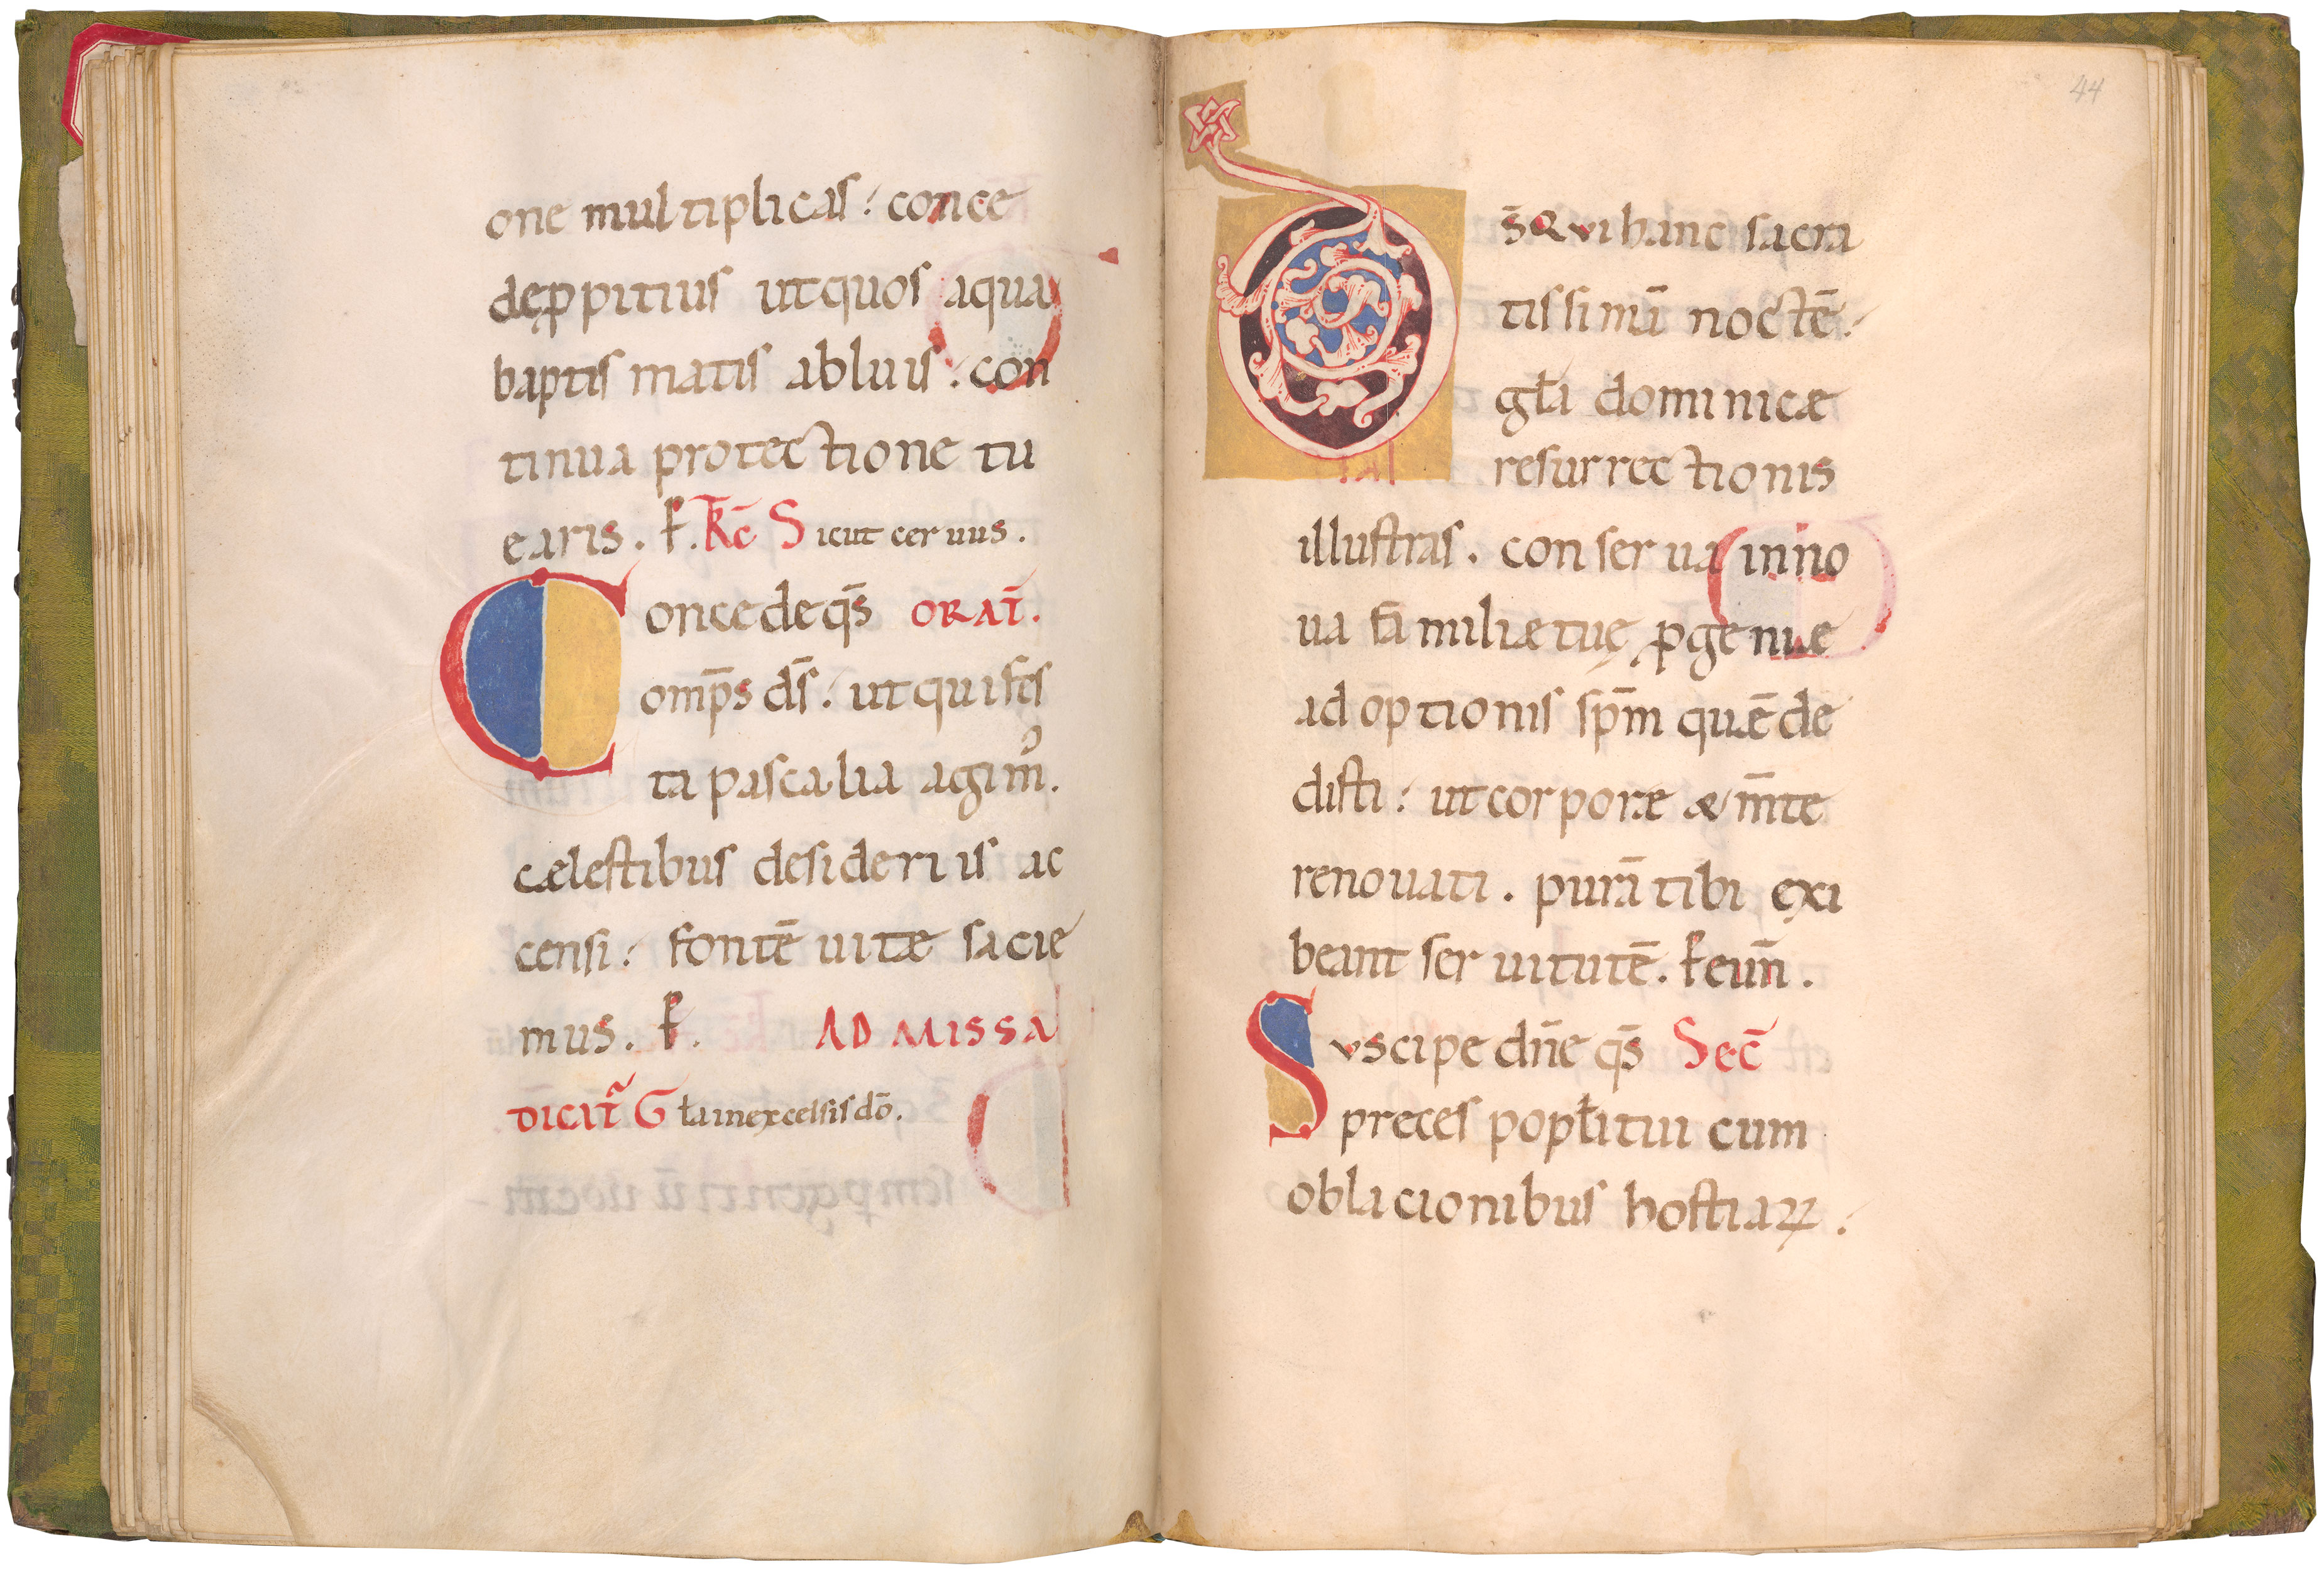 one multiplicas: conce
deꝓpitius utquos aqua
baptis matis abluis. con
tinua protectione tu
earis. ꝑ. R̄c̄ Sicut ceruus.
Concedeq̄s ORAT̄.
omp̄s ds̄: utquifes
ta pascalia agim᷒.
cælestibus desideriis ac
censi: fontē uitæ sacie
mus. ꝑ. AD MISSA
DICIT̄ Gƚa inexcelsis dō.
44
D̄S Qui hanc sacra
tissimā noctē:
gƚi dominicæ
resurrectionis
illustras. conserua inno
ua familiætuę ꝓgeniæ
adoptionis sp̄m quēde
disti: utcorporæ & m̄te
renouati. purā tibi exi
beant seruitutē. ꝑ eun̄.
Suscipe dn̄e q̄s Sec̄
preces popƚitui cum
oblacionibus hostiaꝝ.